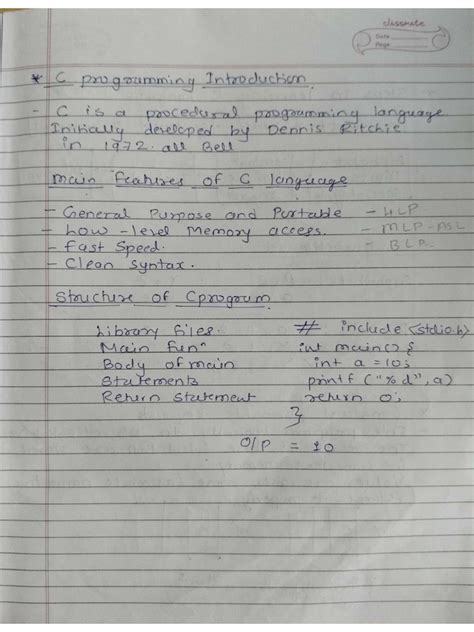 classmate
Date
Page
* C programming Introduction.
- C is a procedural programming language
Initially developed by Dennis Ritchie
in 1972. all Bell
Main Features of C language
- General Purpose and Portable - HLP
- Low-level Memory access. - MLP-ASL
- Fast Speed. - BLP
- Clean syntax.
Structure of C program
Library files. # include <stdio.h>
Main funⁿ int main() {
Body of main int a = 10;
Statements printf ("%d", a)
Return Statement return 0;
}
O/P = 10